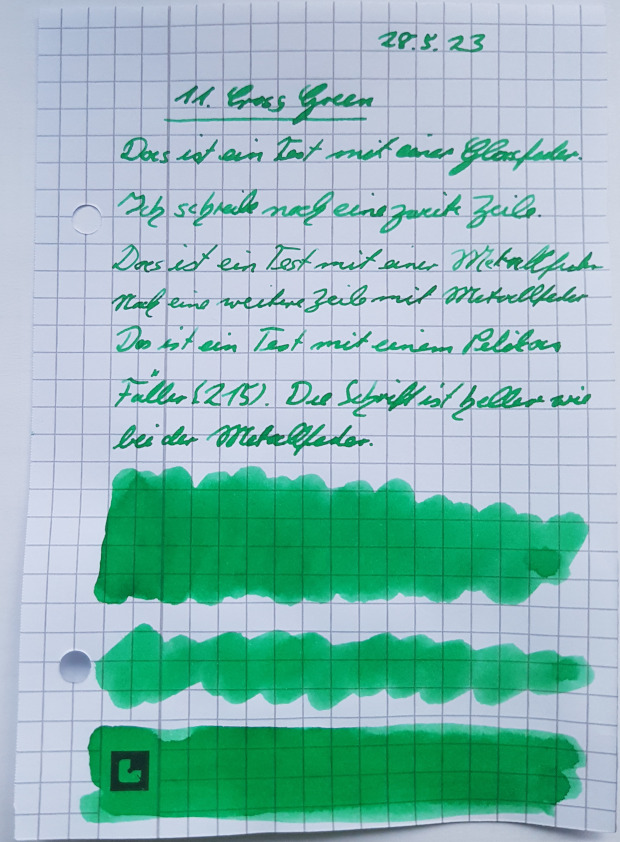 28.5.23
11. Cross Green
Das ist ein Test mit einer Glasfeder.
Ich schreibe noch eine zweite Zeile.
Das ist ein Test mit einer Metallfeder
Noch eine weitere Zeile mit Metallfeder
Das ist ein Test mit einem Pelikan
Füller (215). Die Schrift ist heller wie
bei der Metallfeder.